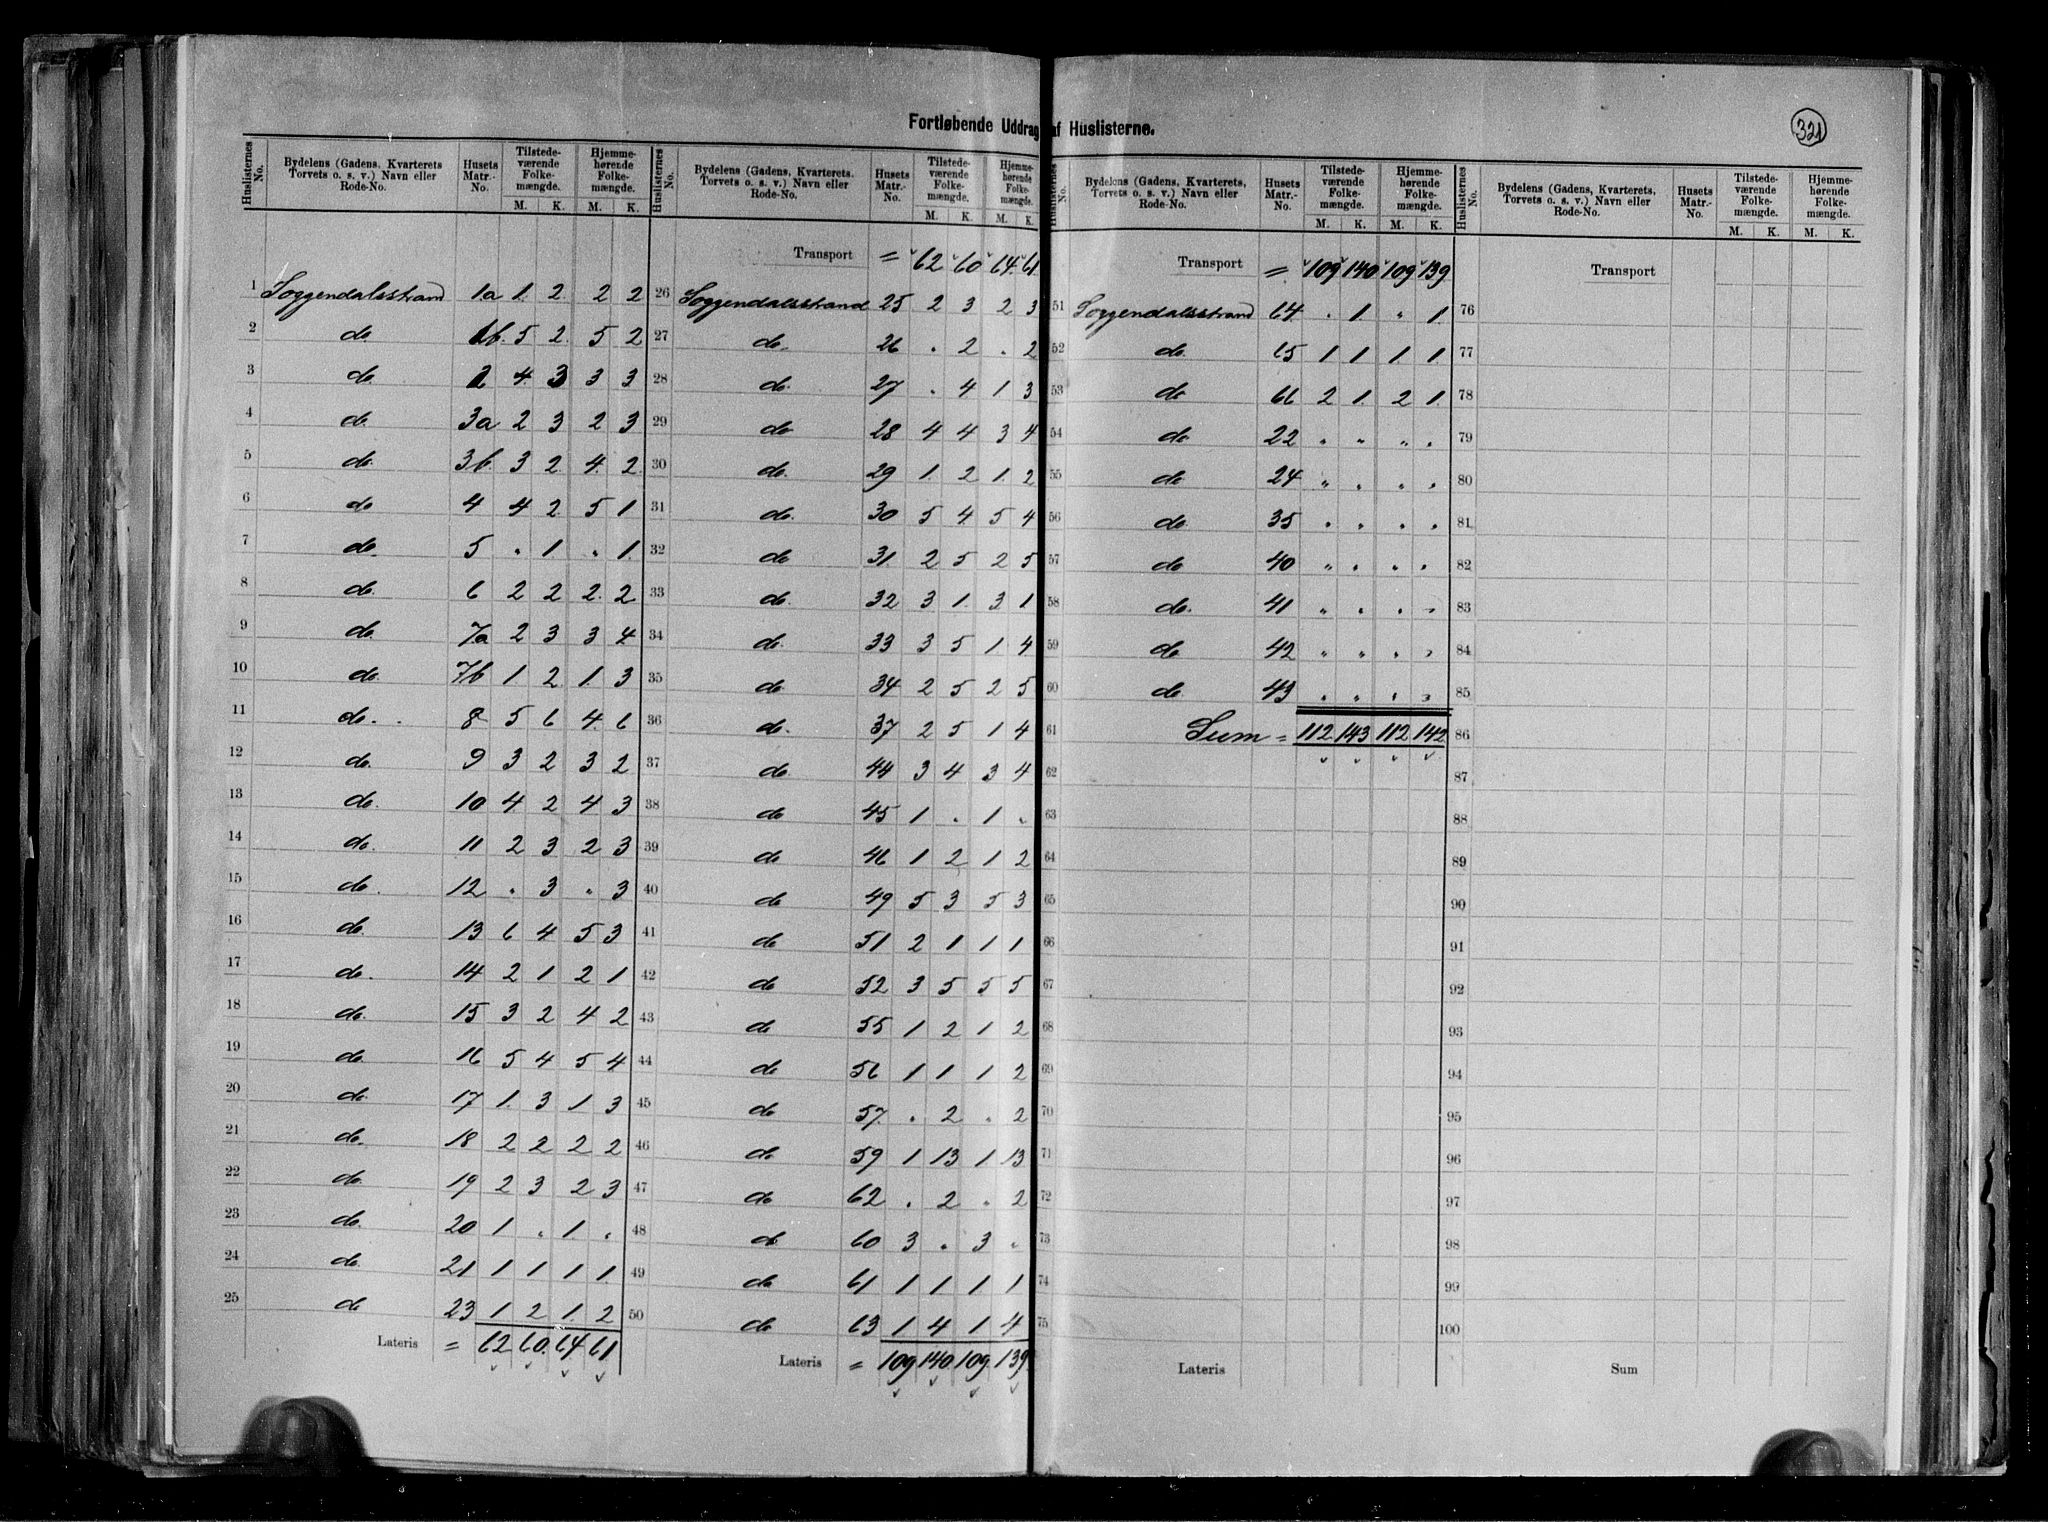 Fortløbende Uddrag af Huslisterne.
321
Huslisternes No. | Bydelens (Gadens, Kvarterets Torvets o. s. v.) Navn eller Rode-No. | Husets Matr.-No. | Tilstedeværende Folkemængde. M. K. | Hjemmehørende Folkemængde. M. K.
1 Soggendalsstrand 1a 1. 2. 2 2
2 do 1b. 5 2. 5 2
3 do. 2 4. 3 3 3
4 do. 3a 2 3 2 3
5 do. 3b. 3 2. 4. 2.
6 do 4 4 2. 5 1
7 do. 5 . 1 . 1.
8 do. 6 2 2 2. 2
9 do. 7a 2 3 3 4
10 do. 7b 1 2. 1. 3
11 do. 8 5 6 4. 6
12 do. 9 3 2 3 2
13 do. 10 4 2 4 3
14 do. 11 2 3 2 3
15 do. 12 . 3 " 3
16 do. 13 6 4 5 3
17 do. 14 2 1 2 1
18 do. 15 3 2 4 2
19 do 16 5 4 5 4
20 do. 17 1. 3 1 3
21 do. 18 2 2 2 2
22 do. 19 2 3 2 3
23 do. 20 1 . 1 .
24 do. 21 1 1 1 1.
25 do 23 1 2 1. 2
Lateris = 62 60. 64 61
Huslisternes No. | Bydelens (Gadens, Kvarterets, Torvets o. s. v.) Navn eller Rode-No. | Husets Matr.-No. | Tilstedeværende Folkemængde. M. K. | Hjemmehørende Folkemængde. M. K.
Transport = 62 60 64. 61.
26 Soggendalsstrand 25 2 3 2 3
27 do. 26 . 2 . 2
28 do. 27 . 4 1 3
29 do 28 4 4 3 4
30 do. 29 1. 2 1. 2
31 do. 30 5 4 5 4
32 do 31. 2 5 2 5
33 do. 32 3 1. 3 1
34 do. 33 3 5 1. 4
35 do. 34 2 5 2 5
36 do. 37 2 5 1 4
37 do 44 3 4 3 4
38 do 45 1 . 1 .
39 do 46 1 2 1 2
40 do 49 5 3 5 3
41 do 51 2 1 1 1
42 do 52 3 5 5 5
43 do 55 1 2 1 2
44 do 56 1 1 1 2
45 do 57. . 2 . 2
46 do 59 1 13 1 13
47 do 62 . 2 . 2
48 do 60 3 . 3 .
49 do 61 1 1 1 1
50 do 63 1 4 1 4
Lateris = 109 140 109. 139
Huslisternes No. | Bydelens (Gadens, Kvarterets, Torvets o. s. v.) Navn eller Rode-No. | Husets Matr.-No. | Tilstedeværende Folkemængde. M. K. | Hjemmehørende Folkemængde. M. K.
Transport = 109 140 109 139
51 Soggendalsstrand 64. . 1. " 1.
52 do. 65 1 1 1 1
53 do 66 2 1. 2 1.
54 do 22 " " " .
55 do 24 " . " .
56 do 35 . . . .
57 do 40 " . . .
58 do. 41 " . . -
59 do 42 " " . .
60 do 43 . . . .
61 Sum = 112 143 112 142
62
63
64
65
66
67
68
69
70
71
72
73
74
75
Lateris
Huslisternes No. | Bydelens (Gadens, Kvarterets, Torvets o. s. v.) Navn eller Rode-No. | Husets Matr.-No. | Tilstedeværende Folkemængde. M. K. | Hjemmehørende Folkemængde. M. K.
Transport
76
77
78
79
80
81
82
83
84
85
86
87
88
89
90
91
92
93
94
95
96
97
98
99
100
Sum